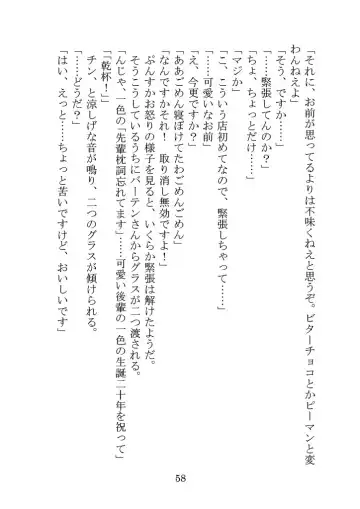 「それに、お前が思ってるよりは不味くねえと思うぞ。ビターチョコとかピーマンと変
わんねえよ」
「そう、ですか……」
「……緊張してんのか？」
「ちょ、ちょっとだけ……」
「マジか」
「こ、こういう店初めてなので、緊張しちゃって……」
「……可愛いなお前」
「え、今更ですか？」
「ああごめん寝ぼけてたわごめんごめん」
「なんですかそれ！　取り消し無効ですよ！」
ぷんすかお怒りの様子を見ると、いくらか緊張は解けたようだ。
そうこうしているうちにバーテンさんからグラスが二つ渡される。
「んじゃ、一色の「先輩枕詞忘れてます」……可愛い後輩の一色の生誕二十年を祝って」
「乾杯！」
チン、と涼しげな音が鳴り、二つのグラスが傾けられる。
「……どうだ？」
「はい、えっと……ちょっと苦いですけど、おいしいです」
58